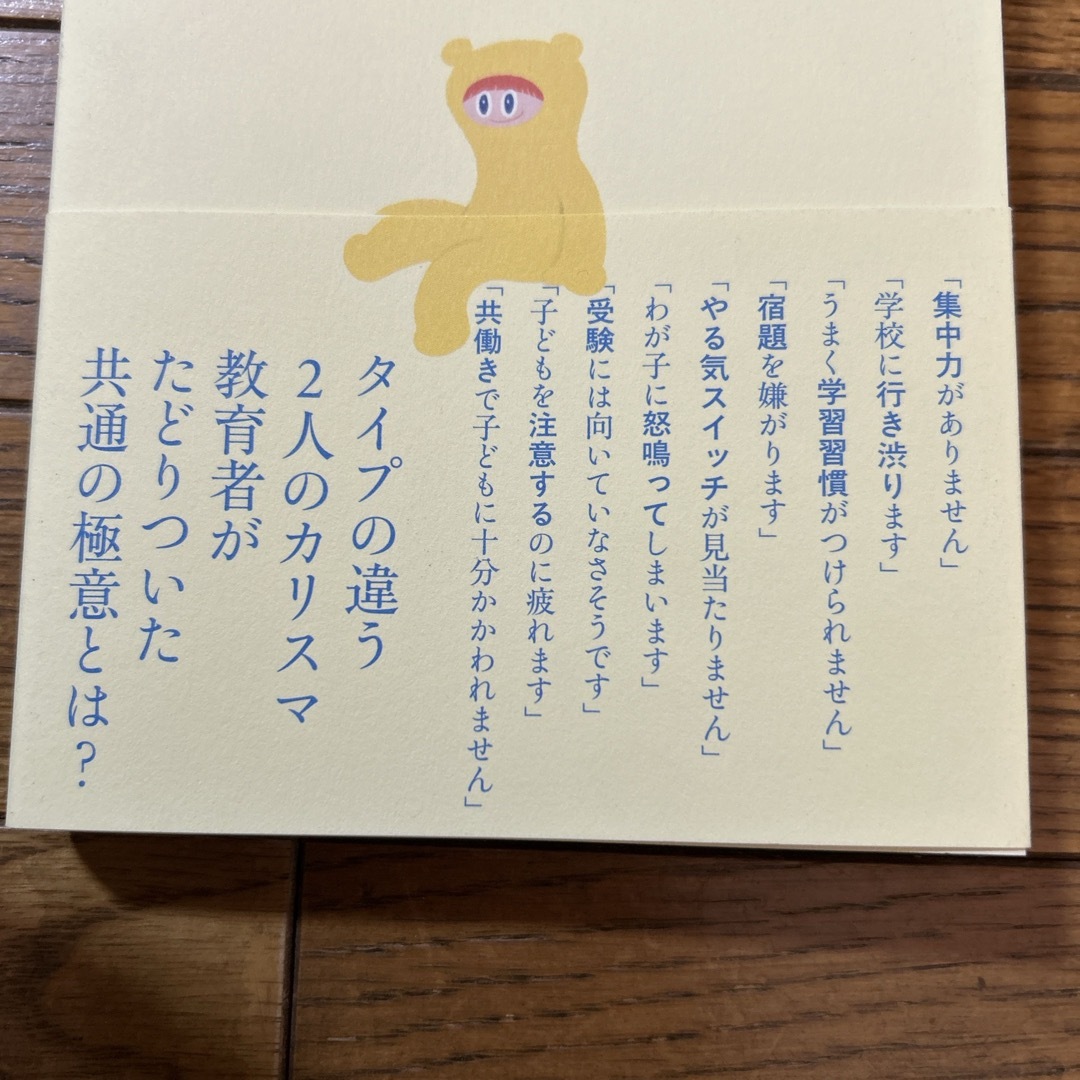 「集中力がありません」
「学校に行き渋ります」
「うまく学習習慣がつけられません」
「宿題を嫌がります」
「やる気スイッチが見当たりません」
「わが子に怒鳴ってしまいます」
「受験には向いていなさそうです」
「子どもを注意するのに疲れます」
「共働きで子どもに十分かかわれません」
タイプの違う
2人のカリスマ
教育者が
たどりついた
共通の極意とは?